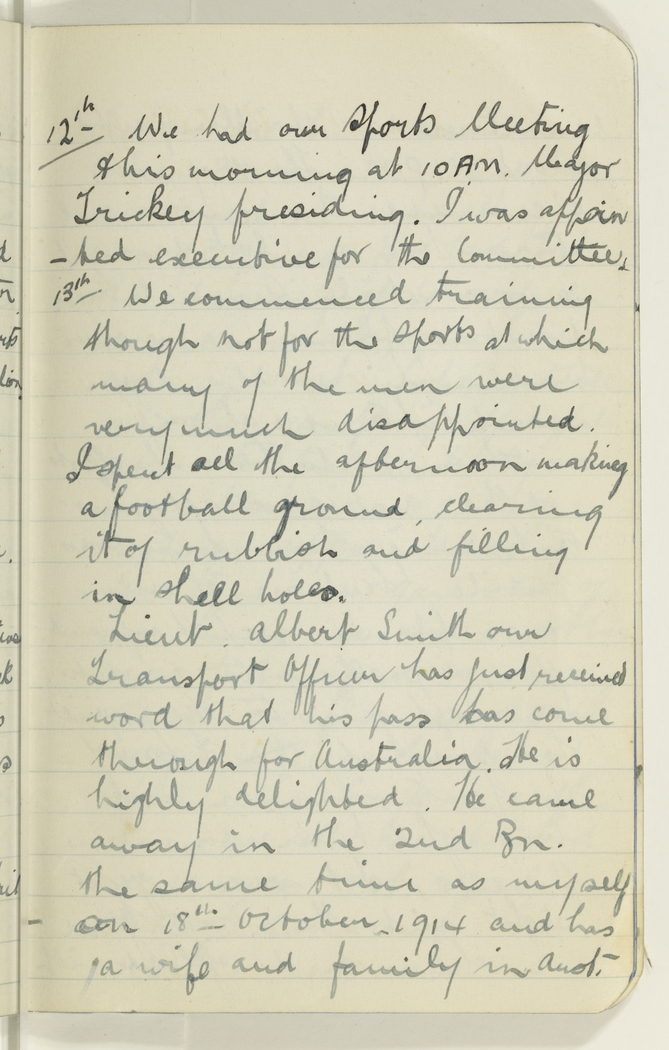 12th We had our Sports Meeting
this morning at 10 A.M. Major
Trickey presiding. I was appoin
-ted executive for the Committee.
13th We commenced training
though not for the sports at which
many of the men were
very much disappointed.
I spent all the afternoon making
a football ground, clearing
it of rubbish and filling
in shell holes.
Lieut. Albert Smith our
Transport Officer has just received
word that his pass has come
through for Australia. He is
highly delighted. He came
away in the 2nd Bn.
the same time as myself
on 18th October 1914 and has
a wife and family in Aust.